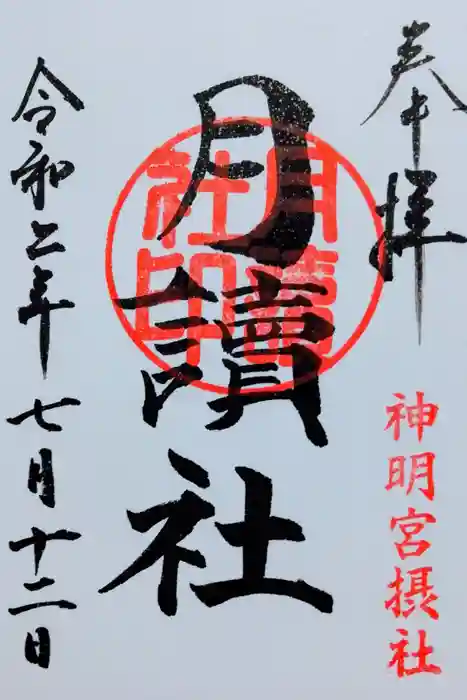 奉拝
神明宮摂社
月讀社
月讀
社印
令和二年七月十二日